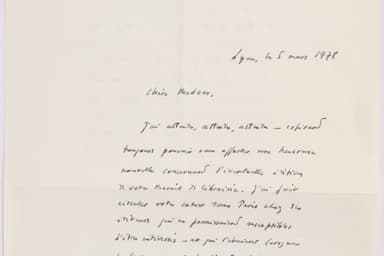 Lyon, le 5 mars 1978
Chère Madame,
J'ai attendu, attendu, attendu – espérant
toujours pouvoir vous apporter une heureuse
nouvelle concernant l'éventuelle édition
de votre . J'ai fait
circuler votre dans Paris chez
éditeurs qui me paraissaient susceptibles
d'être intéressés – et qui